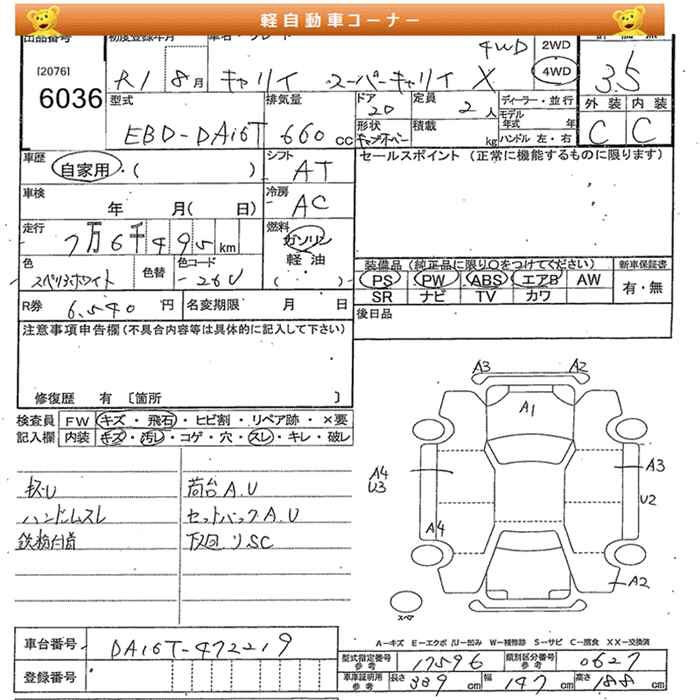 軽自動車コーナー
出品番号 初度登録年月 車名・グレード 4WD 2WD 評価点
[2076] R1 8月 キャリイ スーパーキャリイ X 4WD 3.5
6036 型式 排気量 ドア 20 定員 2人 ディーラー・並行 外装 内装
EBD-DA16T 660cc 形状 積載 kg モデル年式 年 ハンドル 左・右 C C
車歴 自家用・( ) シフト AT セールスポイント (正常に機能するものに限ります)
車検 年 月( 日) 冷房 AC
走行 7万6千495km 燃料 ガソリン 軽油 ( )
装備品 (純正品に限り〇をつけてください) 新車保証書
色 スペリアホワイト 色替 色コード 26U
PS PW ABS エアB AW 有・無
SR ナビ TV カワ
R券 6,540円 名変期限 月 日 後日品
注意事項申告欄 (不具合内容等は具体的に記入して下さい)
修復歴 有 [箇所 ]
検査員 FW キズ・飛石・ヒビ割・リペア跡・×要
記入欄 内装 キズ・汚レ・コゲ・穴・スレ・キレ・破レ
キズU 荷台A.U
ハンドルスレ セットバックA.U
鉄粉付着 下回リSC
A3 A2
A1
A4 U3 A3
U2
A4
A2
スペア
A-キズ E-エクボ U-凹み W-補修跡 S-サビ C-腐食 XX-交換済
車台番号 DA16T-472219
型式指定番号 参考 17596 類別区分番号 参考 0627
登録番号
車庫証明用 参考 長さ 339cm 幅 147cm 高さ 188cm